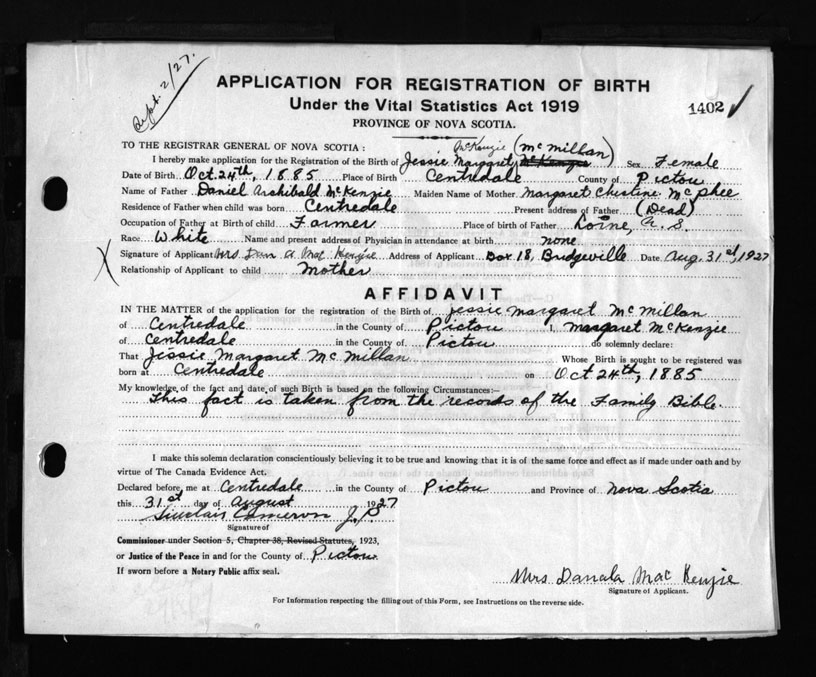 Sept. 2/27.
APPLICATION FOR REGISTRATION OF BIRTH
Under the Vital Statistics Act 1919
1402
PROVINCE OF NOVA SCOTIA.
TO THE REGISTRAR GENERAL OF NOVA SCOTIA :
McKenzie (McMillan)
I hereby make application for the Registration of the Birth of Jessie Margaret McKenzie Sex Female
Date of Birth Oct. 24th, 1885 Place of Birth Centredale County of Pictou
Name of Father Daniel Archibald McKenzie Maiden Name of Mother Margaret Christine McPhee
Residence of Father when child was born Centredale Present address of Father (Dead)
Occupation of Father at Birth of child Farmer Place of birth of Father Lorne, N. S.
Race White Name and present address of Physician in attendance at birth none
Signature of Applicant Mrs Dan A Mac Kenzie Address of Applicant Box 18, Bridgeville Date Aug. 31st, 1927
Relationship of Applicant to child Mother
AFFIDAVIT
IN THE MATTER of the application for the registration of the Birth of Jessie Margaret McMillan
of Centredale in the County of Pictou I, Margaret McKenzie
of Centredale in the County of Pictou do solemnly declare:
That Jessie Margaret McMillan Whose Birth is sought to be registered was
born at Centredale on Oct 24th, 1885
My knowledge of the fact and date of such Birth is based on the following Circumstances:—
This fact is taken from the records of the Family Bible.
I make this solemn declaration conscientiously believing it to be true and knowing that it is of the same force and effect as if made under oath and by
virtue of The Canada Evidence Act.
Declared before me at Centredale in the County of Pictou and Province of Nova Scotia
this 31st day of August 1927
Sinclair Cameron J.P.
Signature of
Commissioner under Section 5, Chapter 38, Revised Statutes, 1923,
or Justice of the Peace in and for the County of Pictou
If sworn before a Notary Public affix seal.
Mrs Dan a Mac Kenzie
Signature of Applicant.
For Information respecting the filling out of this Form, see Instructions on the reverse side.